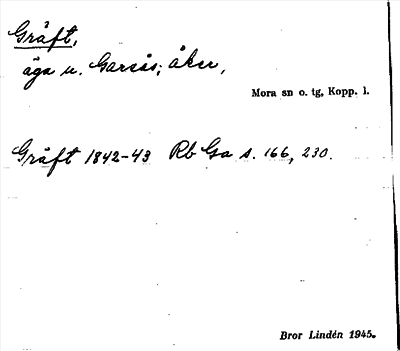 Gräft,
äga u. Garsås; åker,
Mora sn o. tg, Kopp. l.
Gräft 1842-43 Rb Ga s. 166, 230.
Bror Lindén 1945.